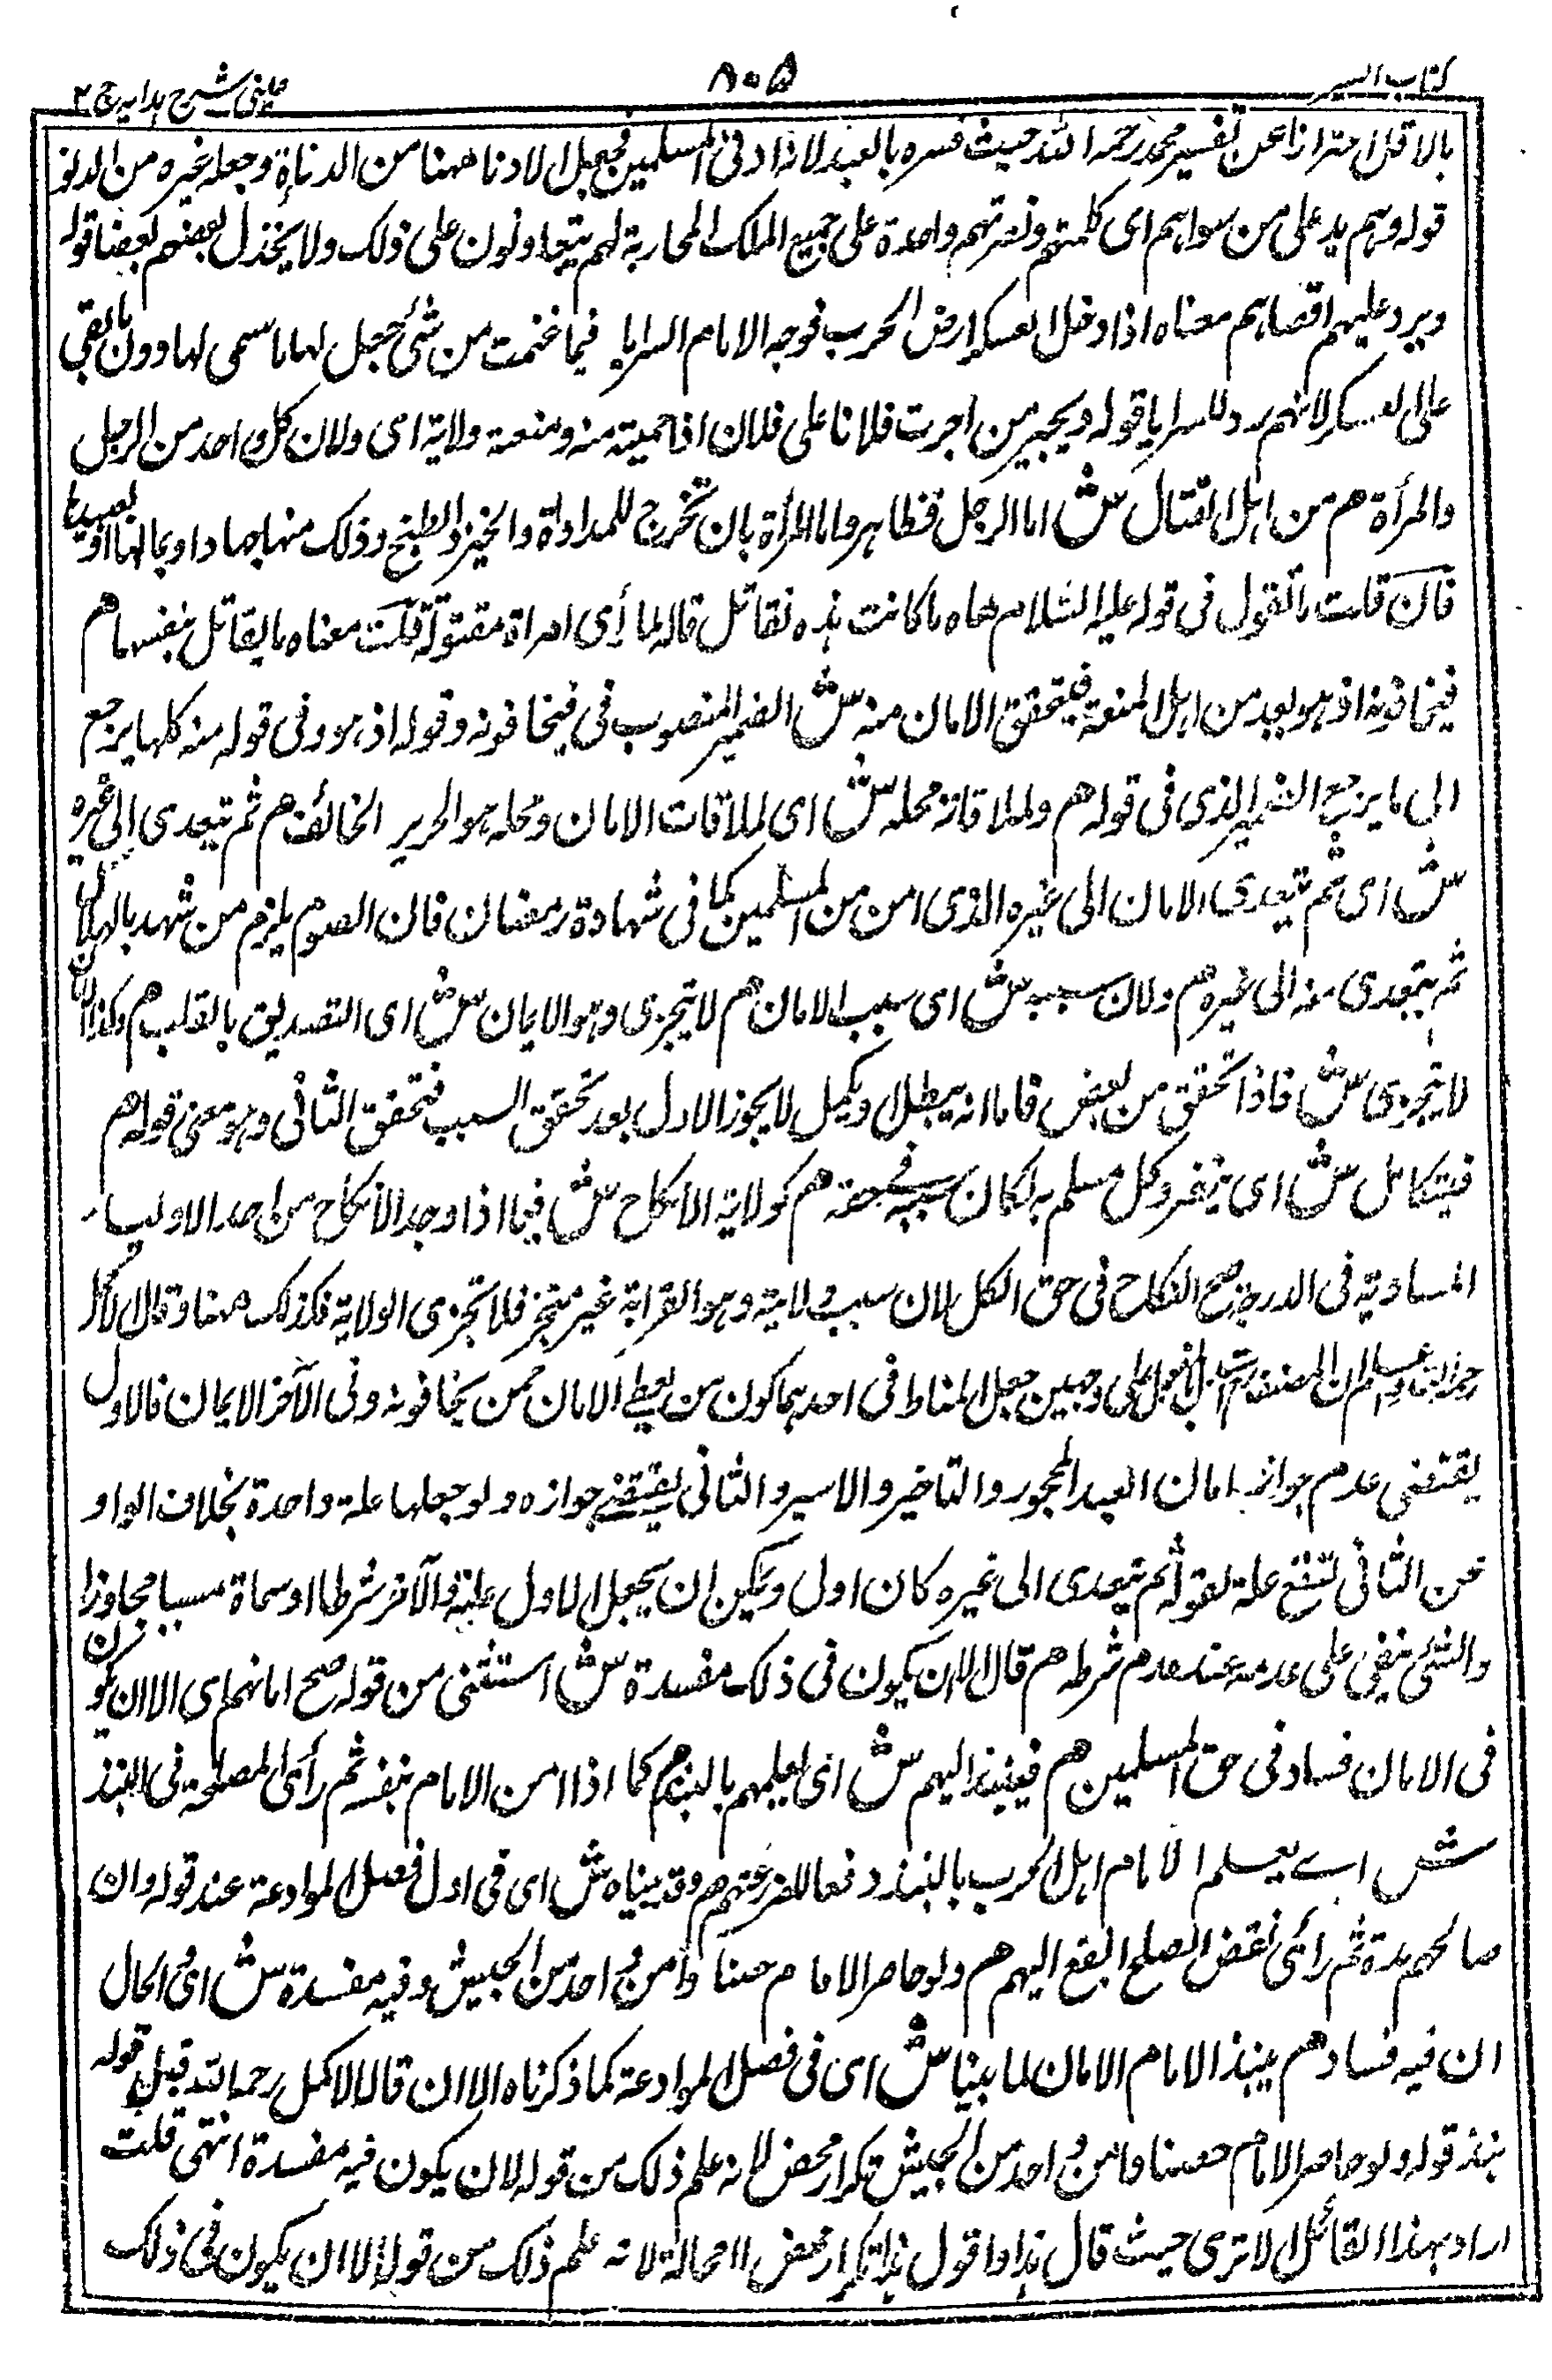 كتاب السير
٨٠٥
عينى شرح هدايه ج ٢
بالاقل احترازا عن تفسير محمد رحمه الله حيث فسره بالعبد لانه ادنى المسلمين فجعل الادنا ههنا من الدناءة وجعله غيره من الدنو
قوله وهم يد على من سواهم اى كلمتهم ونصرتهم واحدة على جميع الملك المحاربة لهم يتعاونون على ذلك ولا يخذل بعضهم بعضا قوله
ويرد عليهم اقصاهم معناه اذا دخل العسكر ارض الحرب فوجه الامام السرايا فيما غنمت من شئ جعل لها ما سمى لها وون ما بقى
على العسكر لانهم رد للسرايا قوله ويجير من اجرت فلانا على فلان اذا حميته منه ومنعته ولاية اى ولان كل واحد من الرجل
والمرأة هم من اهل القتال ش اما الرجل فظاهر واما المرأة بان تخرج للمداواة والخبز والطبخ وذلك منها جهاد او بمالها او بعبيدها
فان قلت ما تقول فى قوله عليه السلام هاه ما كانت هذه تقاتل قاله لما رأى امراة مقتولة قلت معناه ما يقاتل بنفسها م
فيخافونه اذ هو بعد من اهل المنعة فيتحقق الامان منه ش الضمير المنصوب فى فيخافونه وقوله اذ هو وفى قوله منه كلها يرجع
الى ما يرجع الضمير الذى فى قوله م ولملاقاته محله ش اى لملاقات الامان ومحله هو الحربى الخائف م ثم تتعدى الى غيره
ش اى ثم يتعدى الامان الى غيره الذى امن من المسلمين كما فى شهادة رمضان فان الصوم يلزم من شهد بالهلال
ثم يتعدى منه الى غيره م ولان سببه ش اى سبب الامان م لا يتجزى وهو الايمان ش اى التصديق بالقلب م وكذا الامان
لا يتجزى ش فاذا تحقق من بعض فاما انه يبطل او يكمل لا يجوز الاول بعد تحقق السبب فتحقق الثانى وهو معنى قوله م
فيتكامل ش اى ينفرد كل مسلم به لكان سببه فى حقه م كولاية الانكاح ش فيما اذا وجد الانكاح من احد الاوليـاء
المساوية فى الدرجة صح النكاح فى حق الكل لان سبب ولايته وهو القرابة غير متجز فلا تجزى الولاية فكذلك ههنا وقال الاكمل
رحمه الله واعلم ان المصنف على وجهين جعل المناط فى احدهما كون من يعطى الامان ممن يخافونه وفى الآخر الايمان فالاول
يقتضى عدم جواز امان العبد المحجور والتاجر والاسير والثانى يقتضى جوازه ولو جعلها علة واحدة بخلاف الواو
عن الثانى لتقع علة لقوله ثم يتعدى الى غيره كان اولى ويمكن ان يجعل الاول علة والآخر شرطا او سماه سببا مجاوزا
والشئ ينفى على عدمه عند عدم شرطه م قال الا ان يكون فى ذلك مفسدة ش استثنى من قوله صح امانهم اى الا ان يكون
فى الامان فساد فى حق المسلمين م فينبذ اليهم ش اى يعلمهم بالنبذ م كما اذا امن الامام بنفسه ثم رأى المصلحة فى النبذ
ش اے يعلم الامام اهل الحرب بالنبذ دفعا للضرر عنهم م وقد بيناه ش اى فى اول فصل الموادعة عند قوله وان
صالحهم مدة ثم رأى نقض الصلح انفع اليهم م ولو حاصر الامام حصنا وامن واحد من الجيش وفيه مفسدة ش اى والحال
ان فيه فساد م ينبذ الامام الامان لما بينا ش اى فى فصل الموادعة كما ذكرناه الا ان قال الاكمل رحمه الله قيل قوله
ينبذ قوله ولو حاصر الامام حصنا وامن واحد من الجيش تكرار محض لانه علم ذلك من قوله الا ان يكون فيه مفسدة انتهى قلت
اراد بهذا القائل الاترى حيث قال هذا واقول هذا تكرار محض لا محالة لانه علم ذلك من قوله الا ان يكون فى ذلك